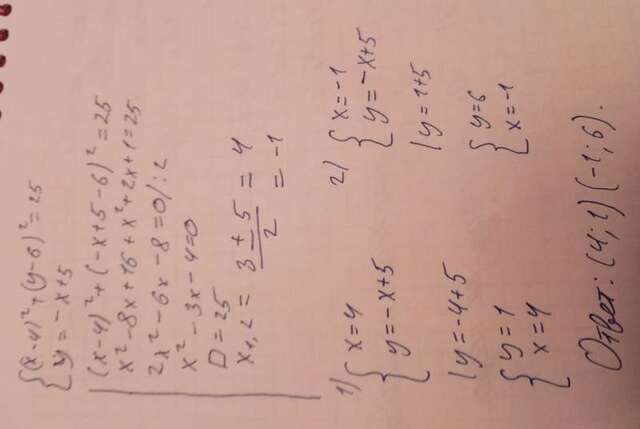 {(x-4)²+(y-6)²=25
{y=-x+5
(x-4)²+(-x+5-6)²=25
x²-8x+16+x²+2x+1=25
2x²-6x-8=0/:2
x²-3x-4=0
D=25
x₁,₂=(3±5)/2=4
=-1
1) {x=4
{y=-x+5
|y=-4+5
{y=1
{x=4
2) {x=-1
{y=-x+5
|y=1+5
{y=6
{x=-1
Ответ: (4;1) (-1;6).